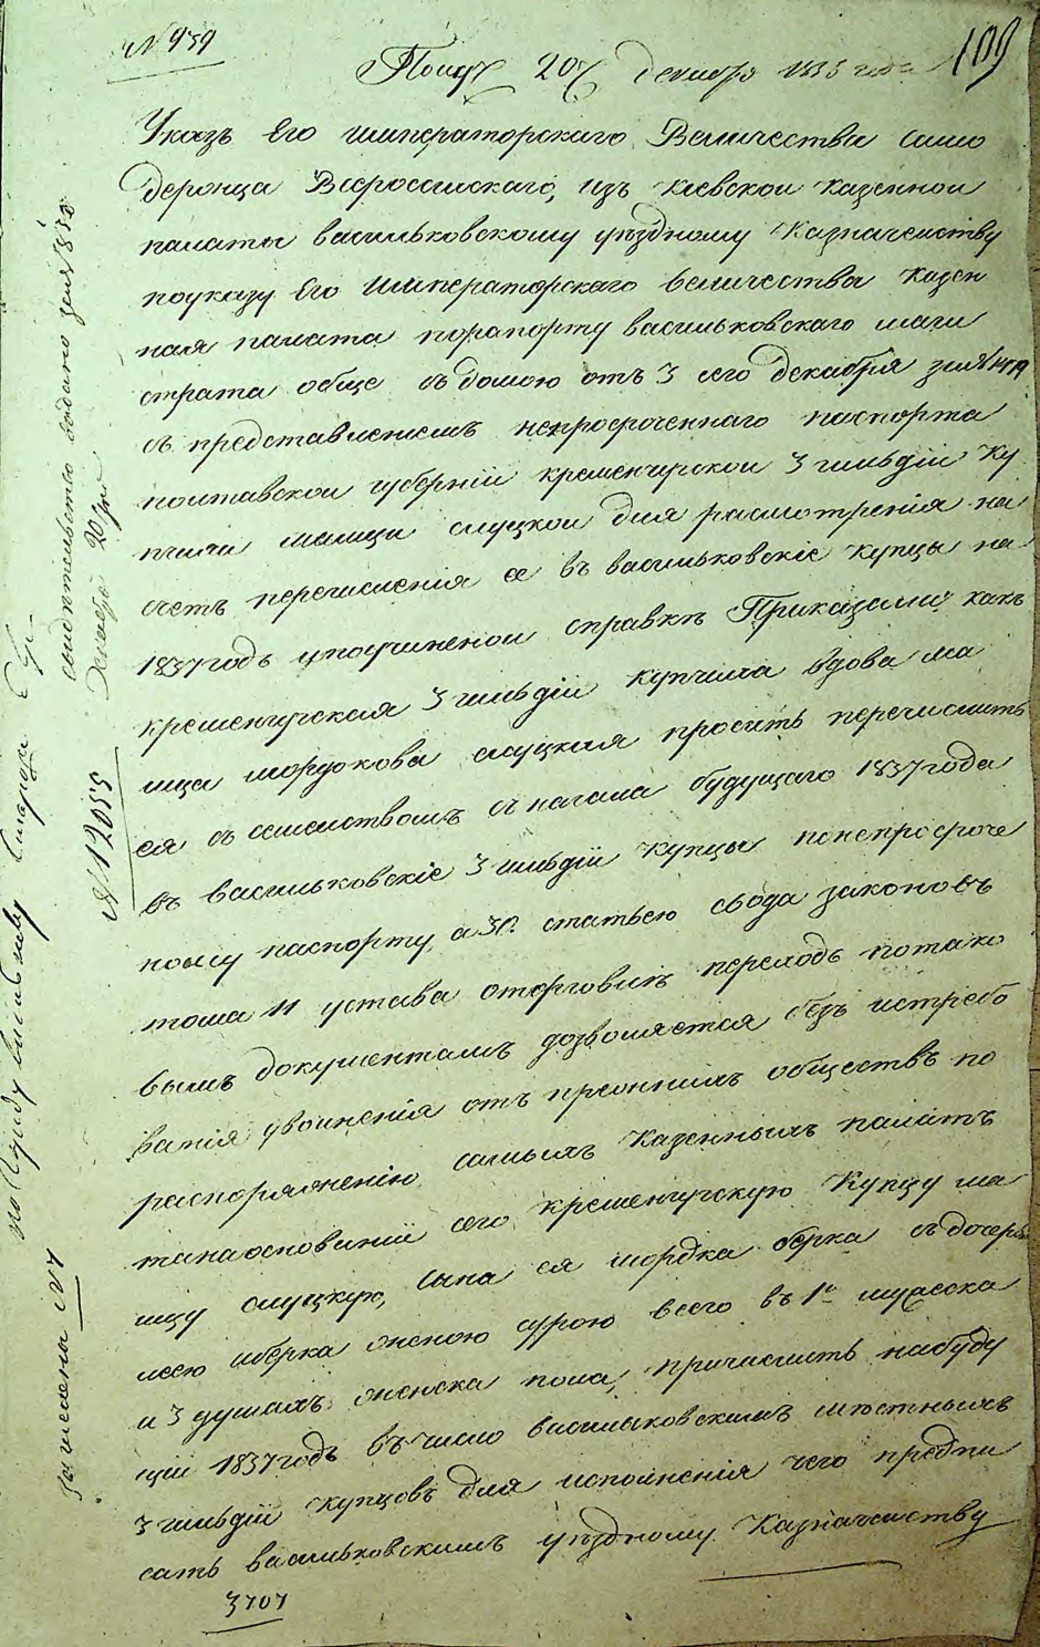 № 959
109
Получ 20 декабря 183 года
Указъ Его императорскаго Величества само
держца Всероссискаго, изъ киевской казенной
палаты васильковскому уѣздному Казначейству
поуказу Его Императорскаго величества казен
ная палата порапорту васильковскаго маги
страта обще съ думою отъ 3 сего декабря за №
съ представлениемъ непросроченнаго паспорта
полтавской губерніи кременчугской 3 гильдіи Ку
пчихи малици слуцкой для расмотрения на
счетъ перечисленія ее въ васильковскіе купцы на
1837 годъ ипоучиненой справкѣ Приказали какъ
кременчугская 3 гильдіи купчиха вдова ма
лица мордохова слуцкая проситъ перечислить
ея съ семействомъ съ начала будущаго 1837 года
въ васильковскіе 3 гильдіи купцы понепросроче
ному паспорту, а 30. статьею свода законовъ
тома 11 устава оторговли переходъ потако
вымъ документамъ дозволяется безъ истребо
ванія увоиненія отъ прежнихъ обществъ по
распоряженію самыхъ казенныхъ палатъ
тонаоснованіи сего кременчугскую Купцу ма
лицу слуцкую, сына ея мордка берка съ дочерь
мею иберка женою сурою всего въ 1й мужеска
и 3 душахъ женска пола, причислить набуду
щій 1837 годъ въ число васильковскихъ мѣстныхъ
3 гильдіи купцовъ для исполненія чего предпи
сать васильковскимъ уѣздному Казначейству
3707
свидѣтельство выдано
декабря 20 дня
№ 12055